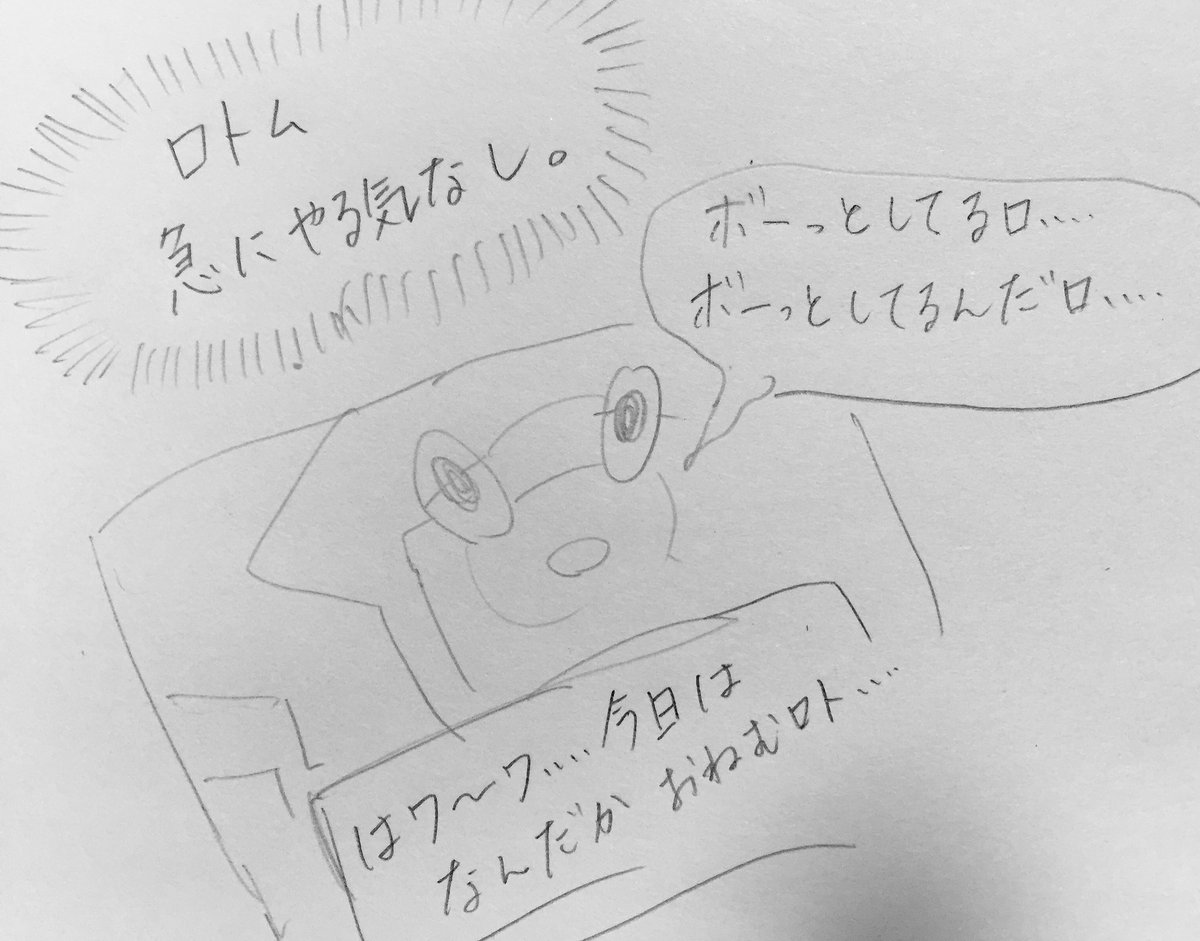 ロトム
急にやる気なし。
ボーっとしてるロ....
ボーっとしてるんだロ....
はワ〜ワ....今日は
なんだか おねむロト...